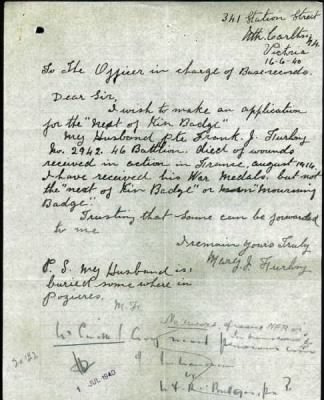 341 Station Street
Nth. Carlton N4
Victoria
16-6-40
To The Officer in charge of Base records.
Dear Sir,
I wish to make an application
for the "next of Kin Badge"
My Husband Pte Frank. J. Furby
No. 2942. 46 Battlion. died of wounds
received in action in France, august 1916,
I have received his War Medals. but not
the "next of Kin Badge" or Mourning
Badge."
Trusting that same can be forwarded
to me
I remain Yours Truly
Mary J. Furby
P.S. My Husband is
buried some where in
Pozieres.
M. F.
No record of
1 JUL 1940